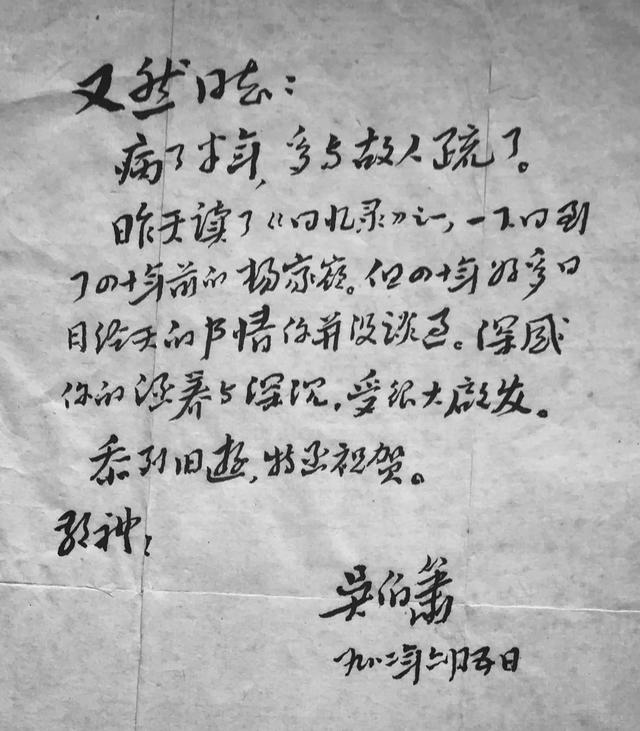 又然同志：
病了半年，多与故人疏了。
昨天读了《回忆录》之一，一下回到
了四十年前的杨家岭。但四十年好多日
月经天的事情你并没谈过。深感
你的涵养与深沉，受很大启发。
忝列旧游，特函祝贺。
吴伯箫
一九八二年六月五日